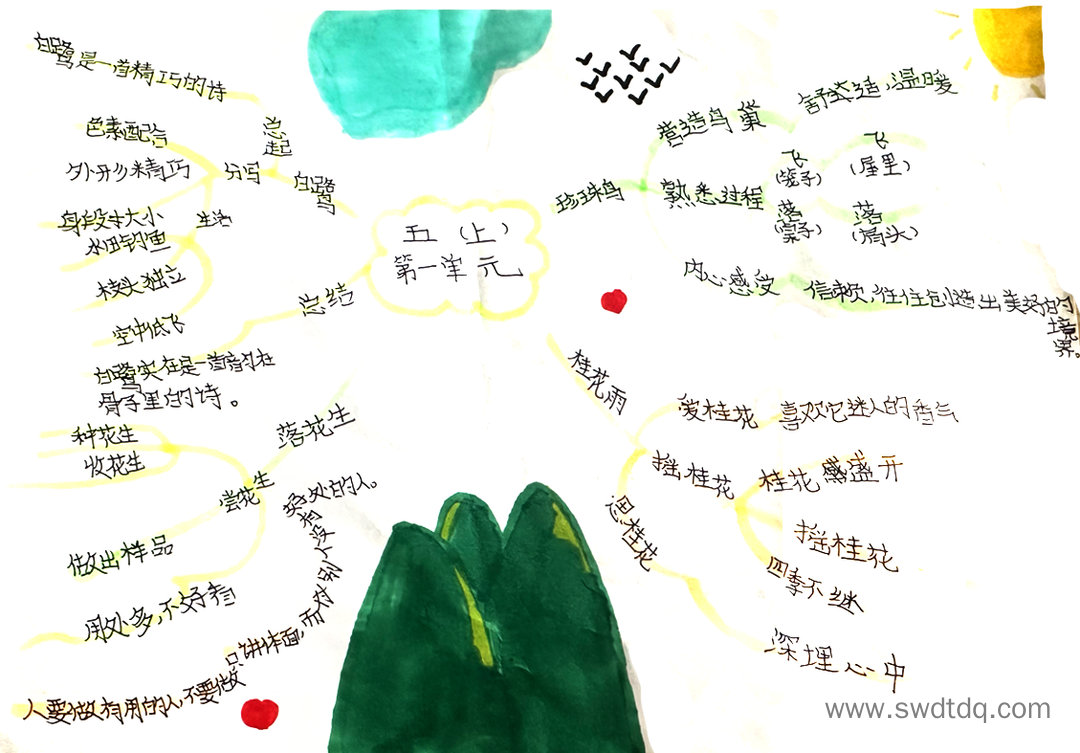 五（上）
第一单元
白鹭
总起
白鹭是一首精巧的诗
分写
色素配合
外形精巧
身段大小
生活
水田钓鱼
枝头独立
空中低飞
总结
白鹭实在是一首韵在
骨子里的诗。
落花生
尝花生
种花生
收花生
做出样品
用处多，不好看
人要做有用的人，不要做
只讲体面，而对别人没有
好处的人。
珍珠鸟
营造鸟巢
舒适，温暖
熟悉过程
飞
（笼子）
飞
（屋里）
落
（桌子）
落
（肩头）
内心感受
信赖，往往创造出美好的
境界。
桂花雨
爱桂花
喜欢它迷人的香气
摇桂花
桂花盛开
摇桂花
四季不继
思桂花
深埋心中
www.swdtdq.com